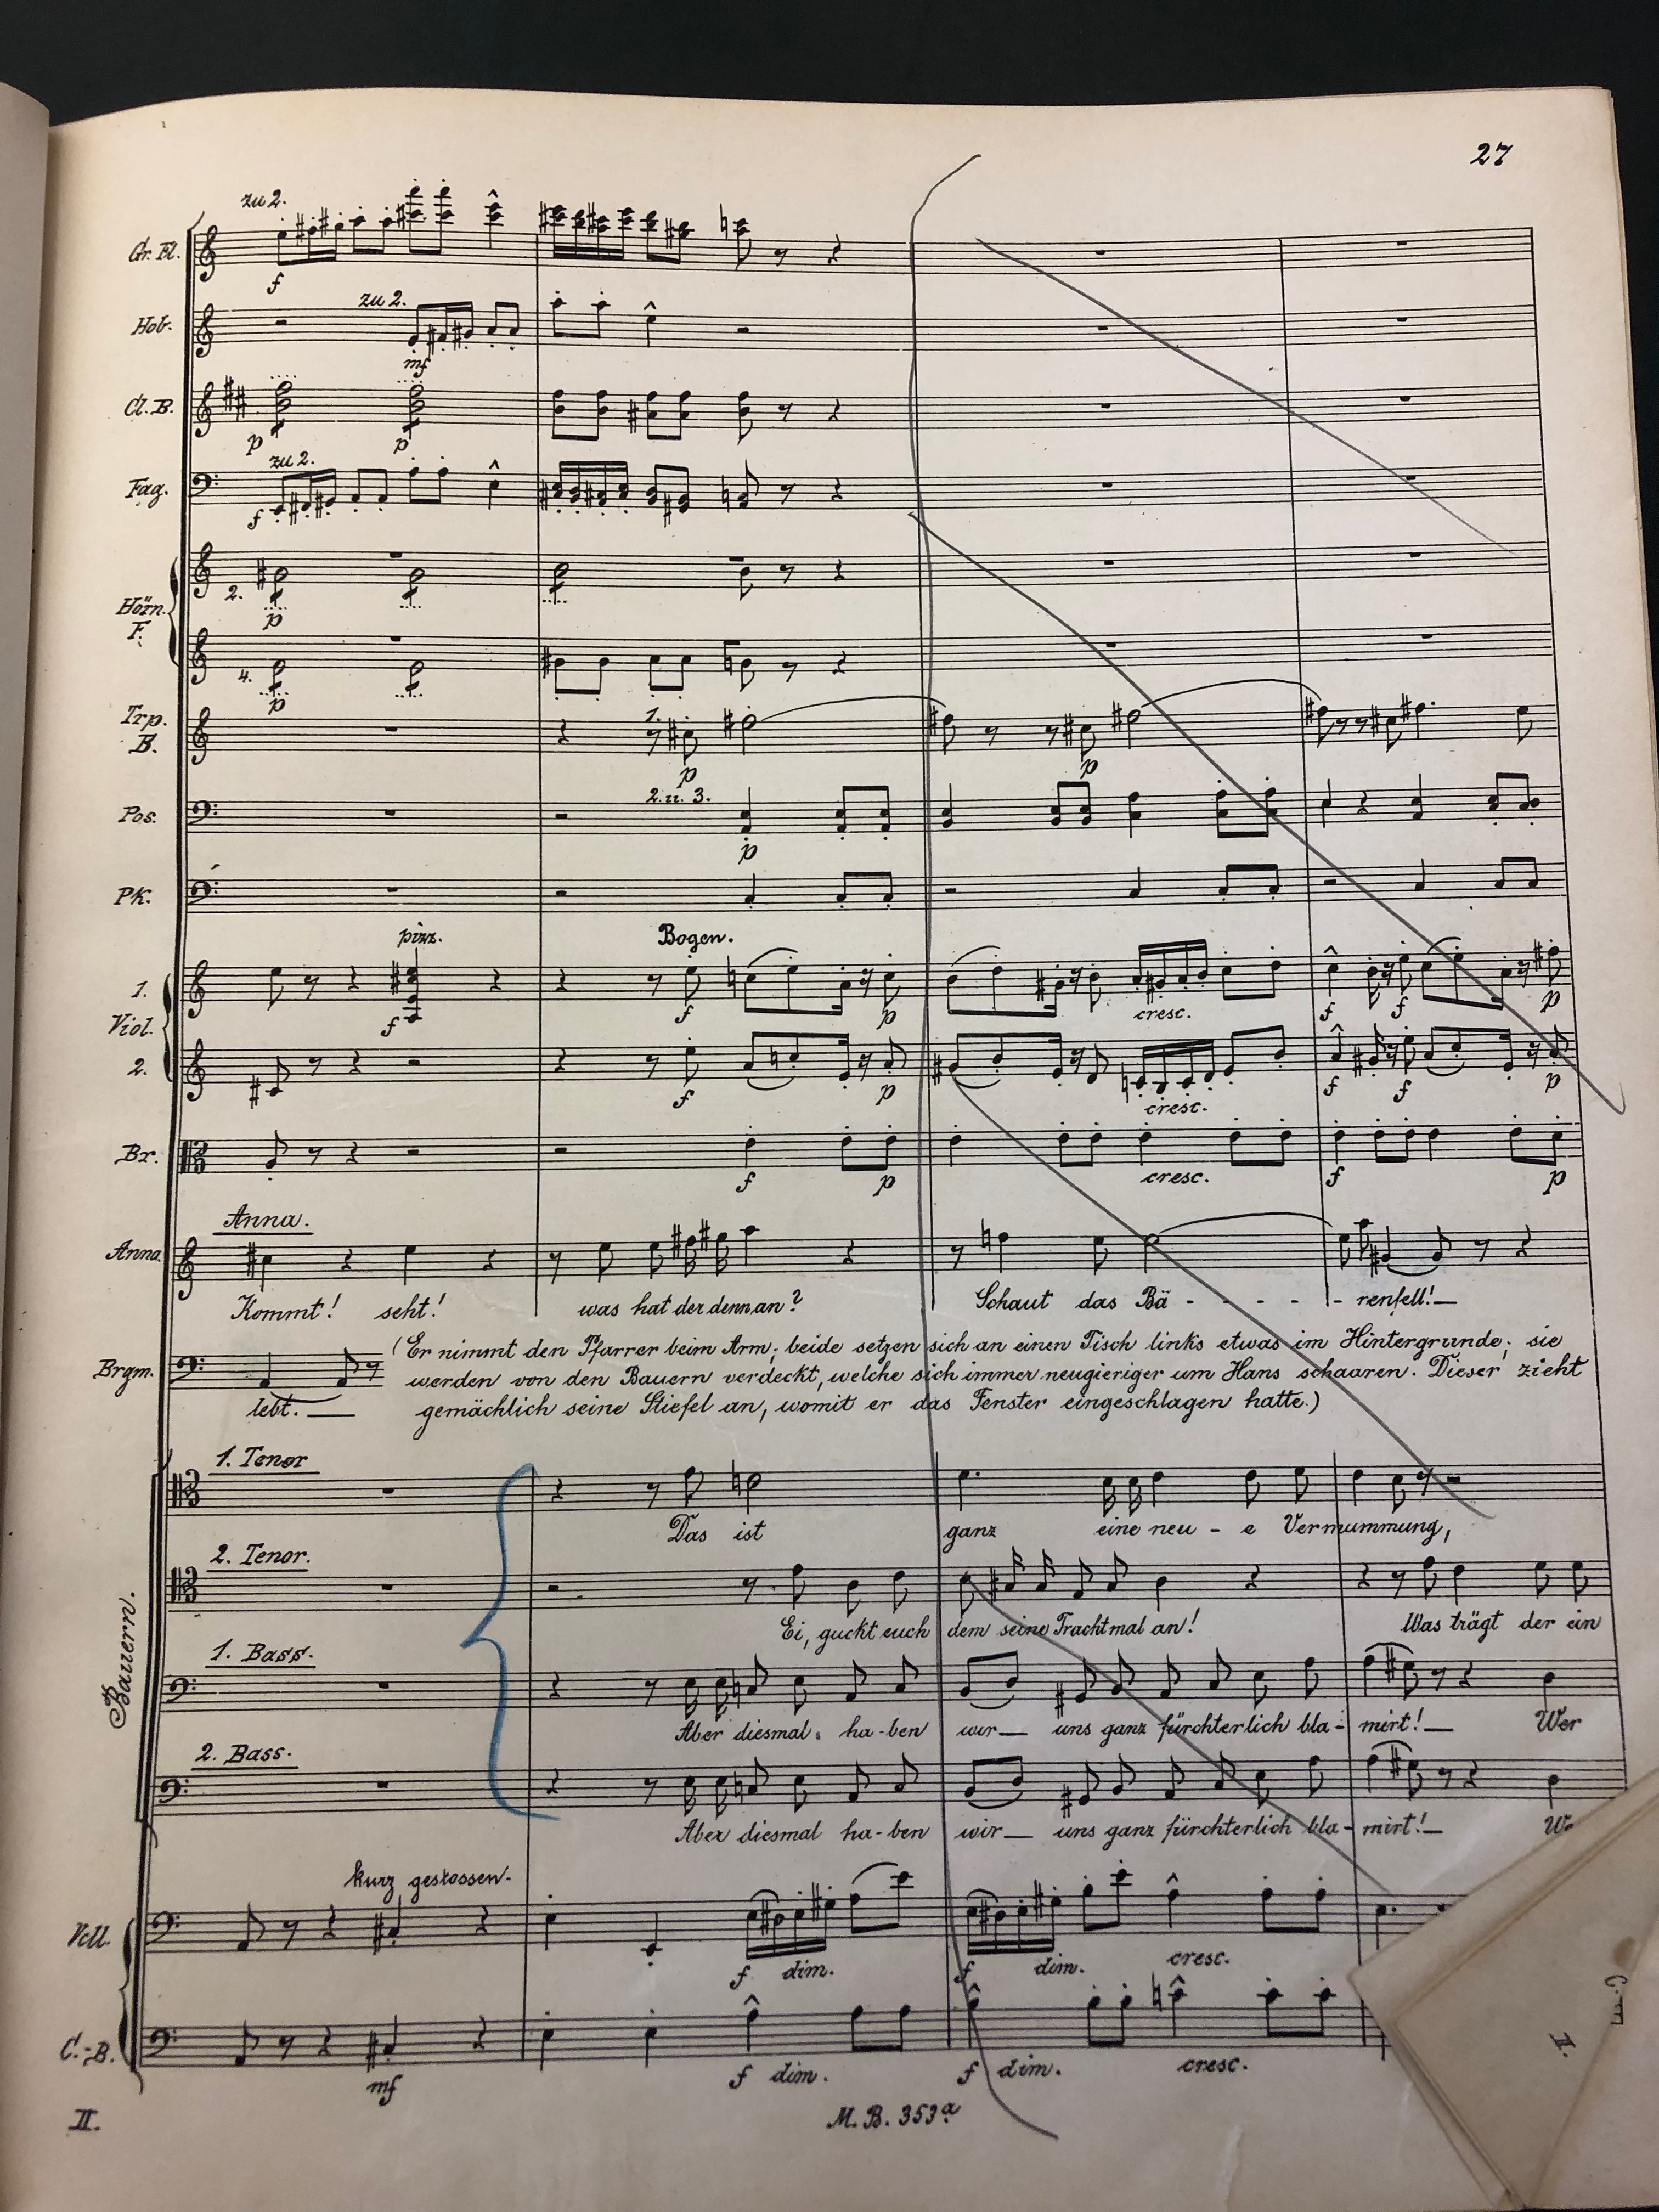 27
zu 2.
Gr. Fl.
f
zu 2.
Hob.
mf
Cl. B.
p p
zu 2.
Fag.
f
2.
p
Hörn.
F.
4.
p
Trp.
B.
1.
p p
2. u. 3.
Pos.
p
Pk.
pizz. Bogen.
1.
f f p cresc. f f p
Viol.
2.
f p cresc. f f p
Br.
f p cresc. f p
Anna.
Anna.
Kommt! seht! was hat der denn an? Schaut das Bä - - - - - renfell!—
Brgm.
(Er nimmt den Pfarrer beim Arm; beide setzen sich an einen Tisch links etwas im Hintergrunde; sie
werden von den Bauern verdeckt, welche sich immer neugieriger um Hans schaaren. Dieser zieht
lebt. — gemächlich seine Stiefel an, womit er das Fenster eingeschlagen hatte.)
Bauern.
1. Tenor
Das ist ganz eine neu - e Vermummung,
2. Tenor.
Ei, guckt euch dem seine Tracht mal an! Was trägt der ein
1. Bass.
Aber diesmal ha-ben wir— uns ganz fürchterlich bla - mirt!— Wer
2. Bass.
Aber diesmal ha-ben wir— uns ganz fürchterlich bla - mirt!—
kurz gestossen.
Vcll.
f dim. f dim. cresc.
C.-B.
mf f dim. f dim. cresc.
II. M. B. 353a
I.